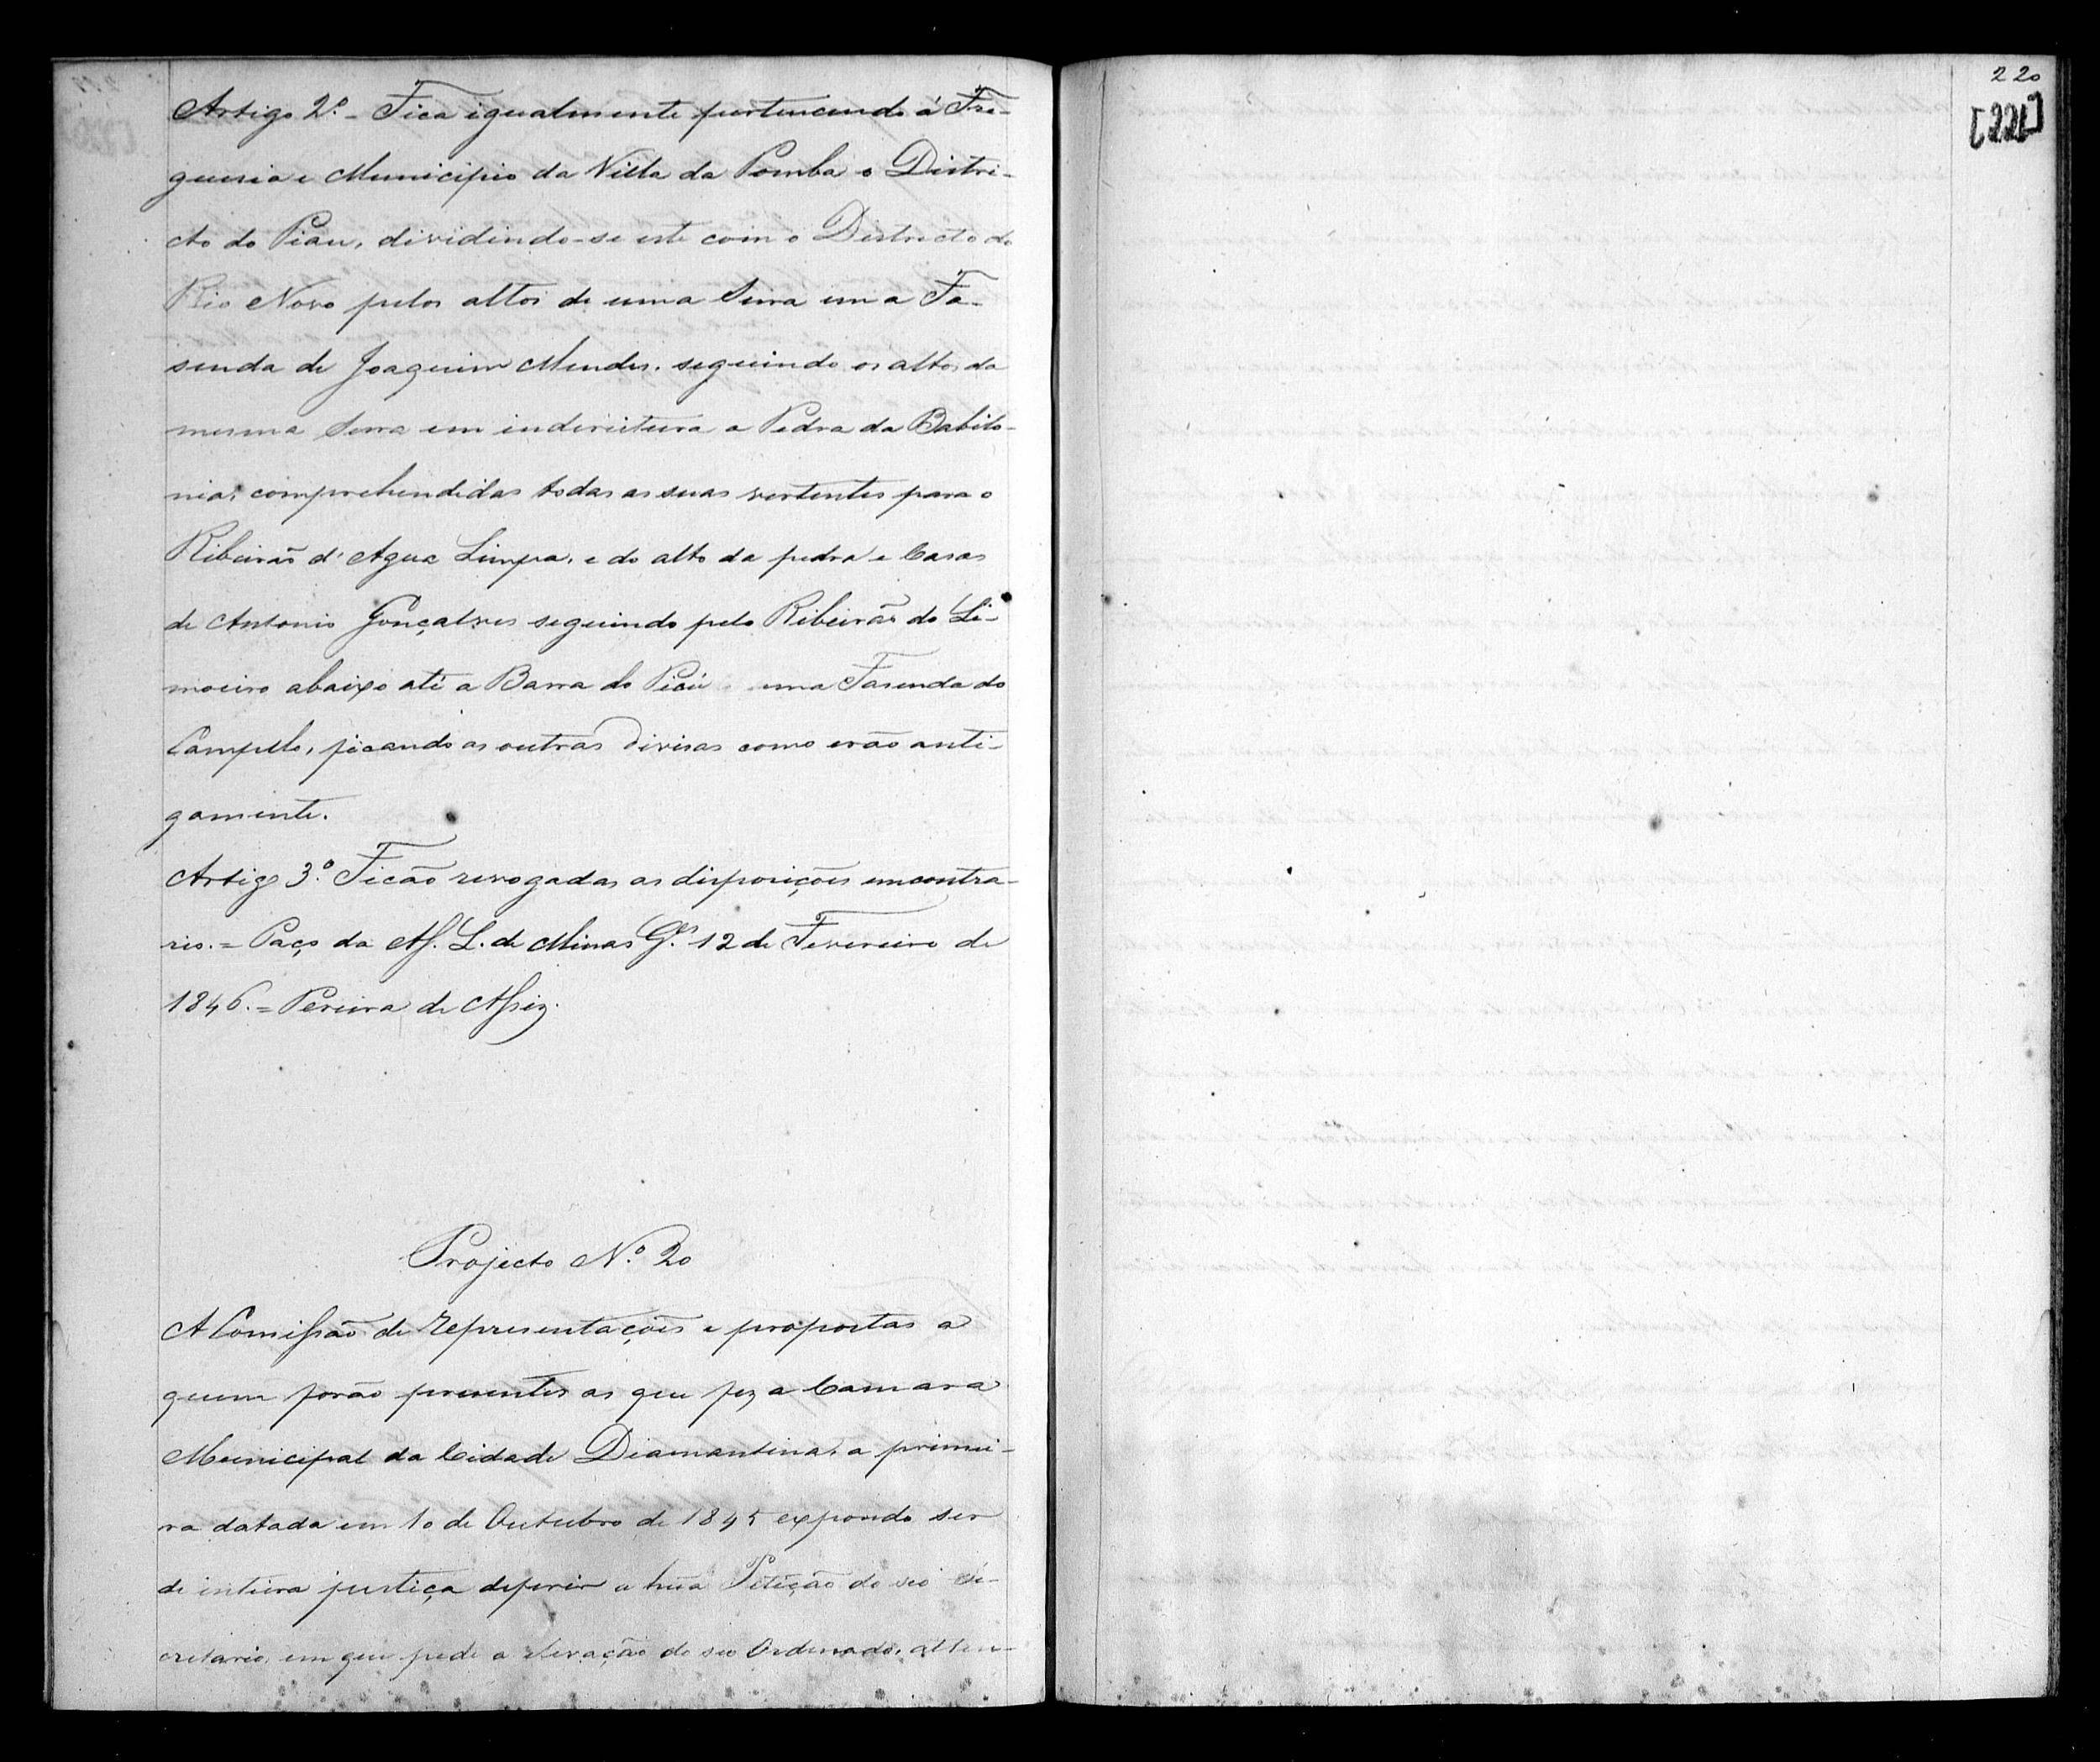 Artigo 2.º - Fica igualmente pertencendo á Fre-
guesia e Municipio da Villa da Pomba o Distri-
cto do Piau, dividindo-se este com o Districto do
Rio Novo pelos altos de uma Serra em a Fa-
senda de Joaquim Mendes, seguindo os altos da
mesma Serra em indereitura a Pedra da Babilo-
nia, comprehendidas todas as suas vertentes para o
Ribeirão d'Agua Limpa, e do alto da pedra e Casas
de Antonio Gonçalves seguindo pelo Ribeirão do Li-
moeiro abaixo até a Barra do Piáu uma Fasenda do
Campello, ficando as outras divisas como erão anti-
gamente.
Artigo 3.º Ficão revogadas as disposições em contra-
rio. = Paço da Aſ. L. de Minas G.es 12 de Fevereiro de
1846. = Pereira de Aſsiz.
Projecto N.º 20
A Comiſsão de representações e propostas a
quem forão presentes as que fez a Camara
Municipal da Cidade Diamantina, a primei-
ra datada em 10 de Outubro de 1845 expondo ser
de inteira justiça deferir a hũa Petição do seo se-
cretario, em que pede a elevação do seo Ordenado, atten-
220
[221]